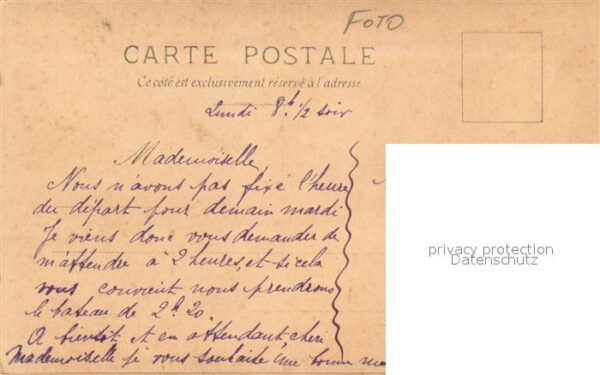 FOTO
CARTE POSTALE
Ce côté est exclusivement réservé à l'adresse
Lundi 8h 1/2 soir
Mademoiselle,
Nous n'avons pas fixé l'heure
du départ pour demain mardi
Je viens donc vous demander de
m'attendre à 2 heures, et si cela
vous convient nous prendrons
le bateau de 2h 20.
A bientôt et en attendant cheri
Mademoiselle je vous souhaite une bonne
privacy protection
Datenschutz